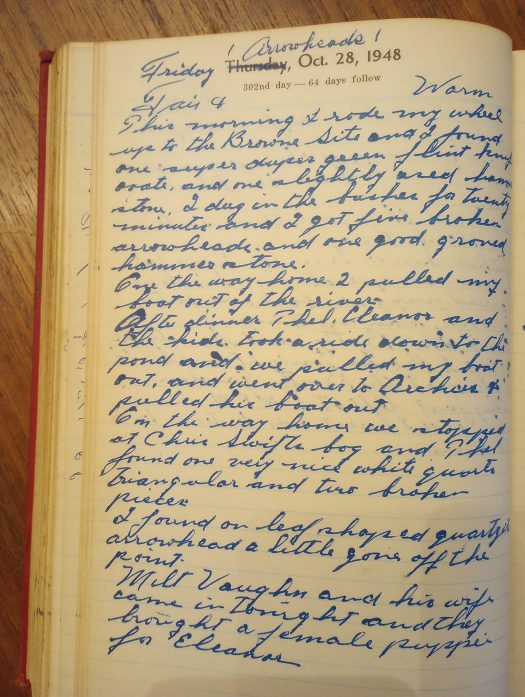 ! Arrowheads!
Friday Thursday, Oct. 28, 1948
302nd day — 64 days follow
Fair & Warm
This morning I rode my wheel
up to the Browne Site and I found
one super duper green flint knif
ovate, and one slightly used hamm
stone. I dug in the bushes for twenty
minutes and I got five broken
arrowheads and one good grooved
hammer stone.
On the way home I pulled my
boat out of the river.
After dinner Thel, Eleanor and
the kids took a ride down to the
pond and we pulled my boat
out, and went over to Archies &
pulled his boat out
On the way home we stopped
at Chris Swifts bog and Thel
found one very nice white quartz
triangular and two broken
pieces
I found on leaf shaped quartzite
arrowhead a little gone off the
point.
Milt Vaughn and his wife
came in tonight and they
brought a female puppie
for Eleanor